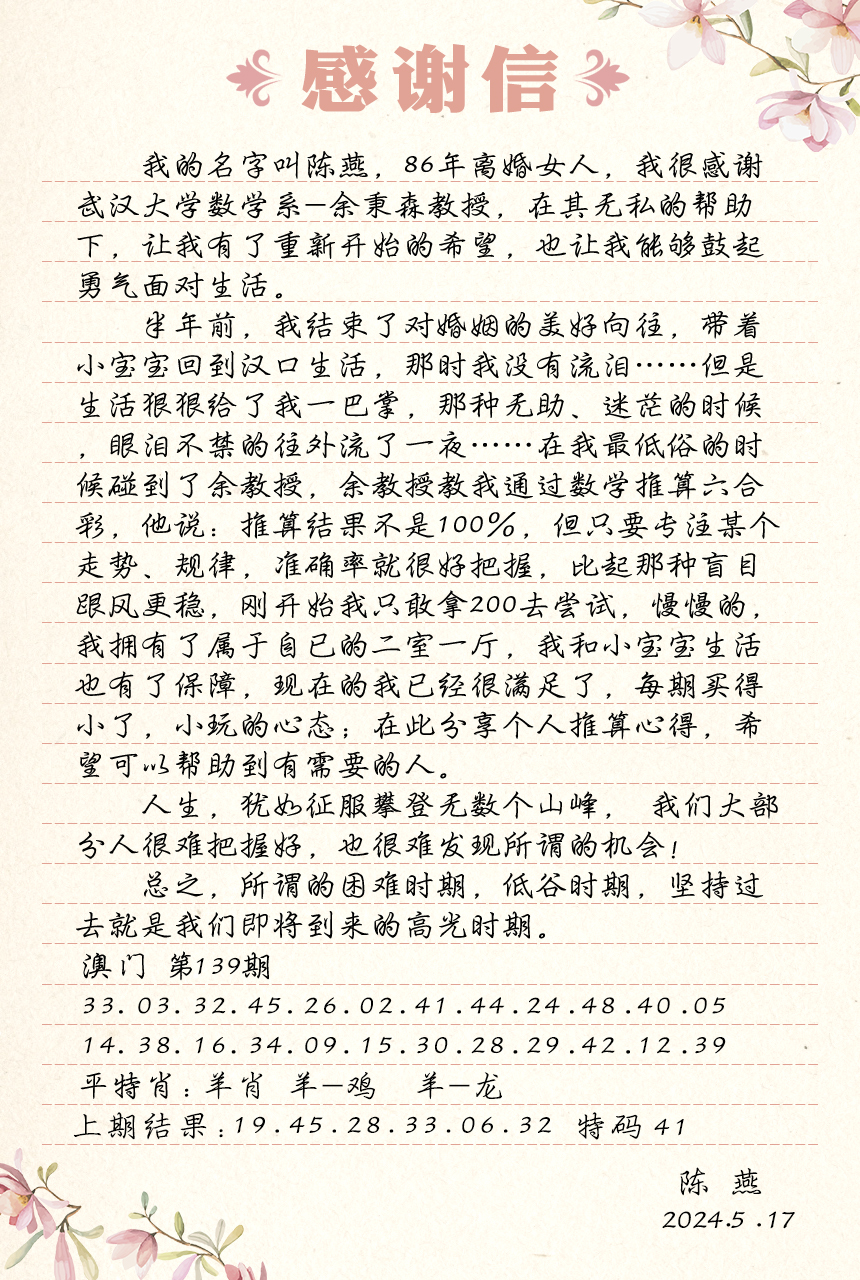 感谢信
我的名字叫陈燕，86年离婚女人，我很感谢
武汉大学数学系—余秉森教授，在其无私的帮助
下，让我有了重新开始的希望，也让我能够鼓起
勇气面对生活。
半年前，我结束了对婚姻的美好向往，带着
小宝宝回到汉口生活，那时我没有流泪……但是
生活狠狠给了我一巴掌，那种无助、迷茫的时候
，眼泪不禁的往外流了一夜……在我最低俗的时
候碰到了余教授，余教授教我通过数学推算六合
彩，他说：推算结果不是100%，但只要专注某个
走势、规律，准确率就很好把握，比起那种盲目
跟风更稳，刚开始我只敢拿200去尝试，慢慢的，
我拥有了属于自已的二室一厅，我和小宝宝生活
也有了保障，现在的我已经很满足了，每期买得
小了，小玩的心态；在此分享个人推算心得，希
望可以帮助到有需要的人。
人生，犹如征服攀登无数个山峰， 我们大部
分人很难把握好，也很难发现所谓的机会！
总之，所谓的困难时期，低谷时期，坚持过
去就是我们即将到来的高光时期。
澳门 第139期
33.03.32.45.26.02.41.44.24.48.40.05
14.38.16.34.09.15.30.28.29.42.12.39
平特肖：羊肖 羊—鸡 羊—龙
上期结果：19.45.28.33.06.32 特码 41
陈 燕
2024.5.17